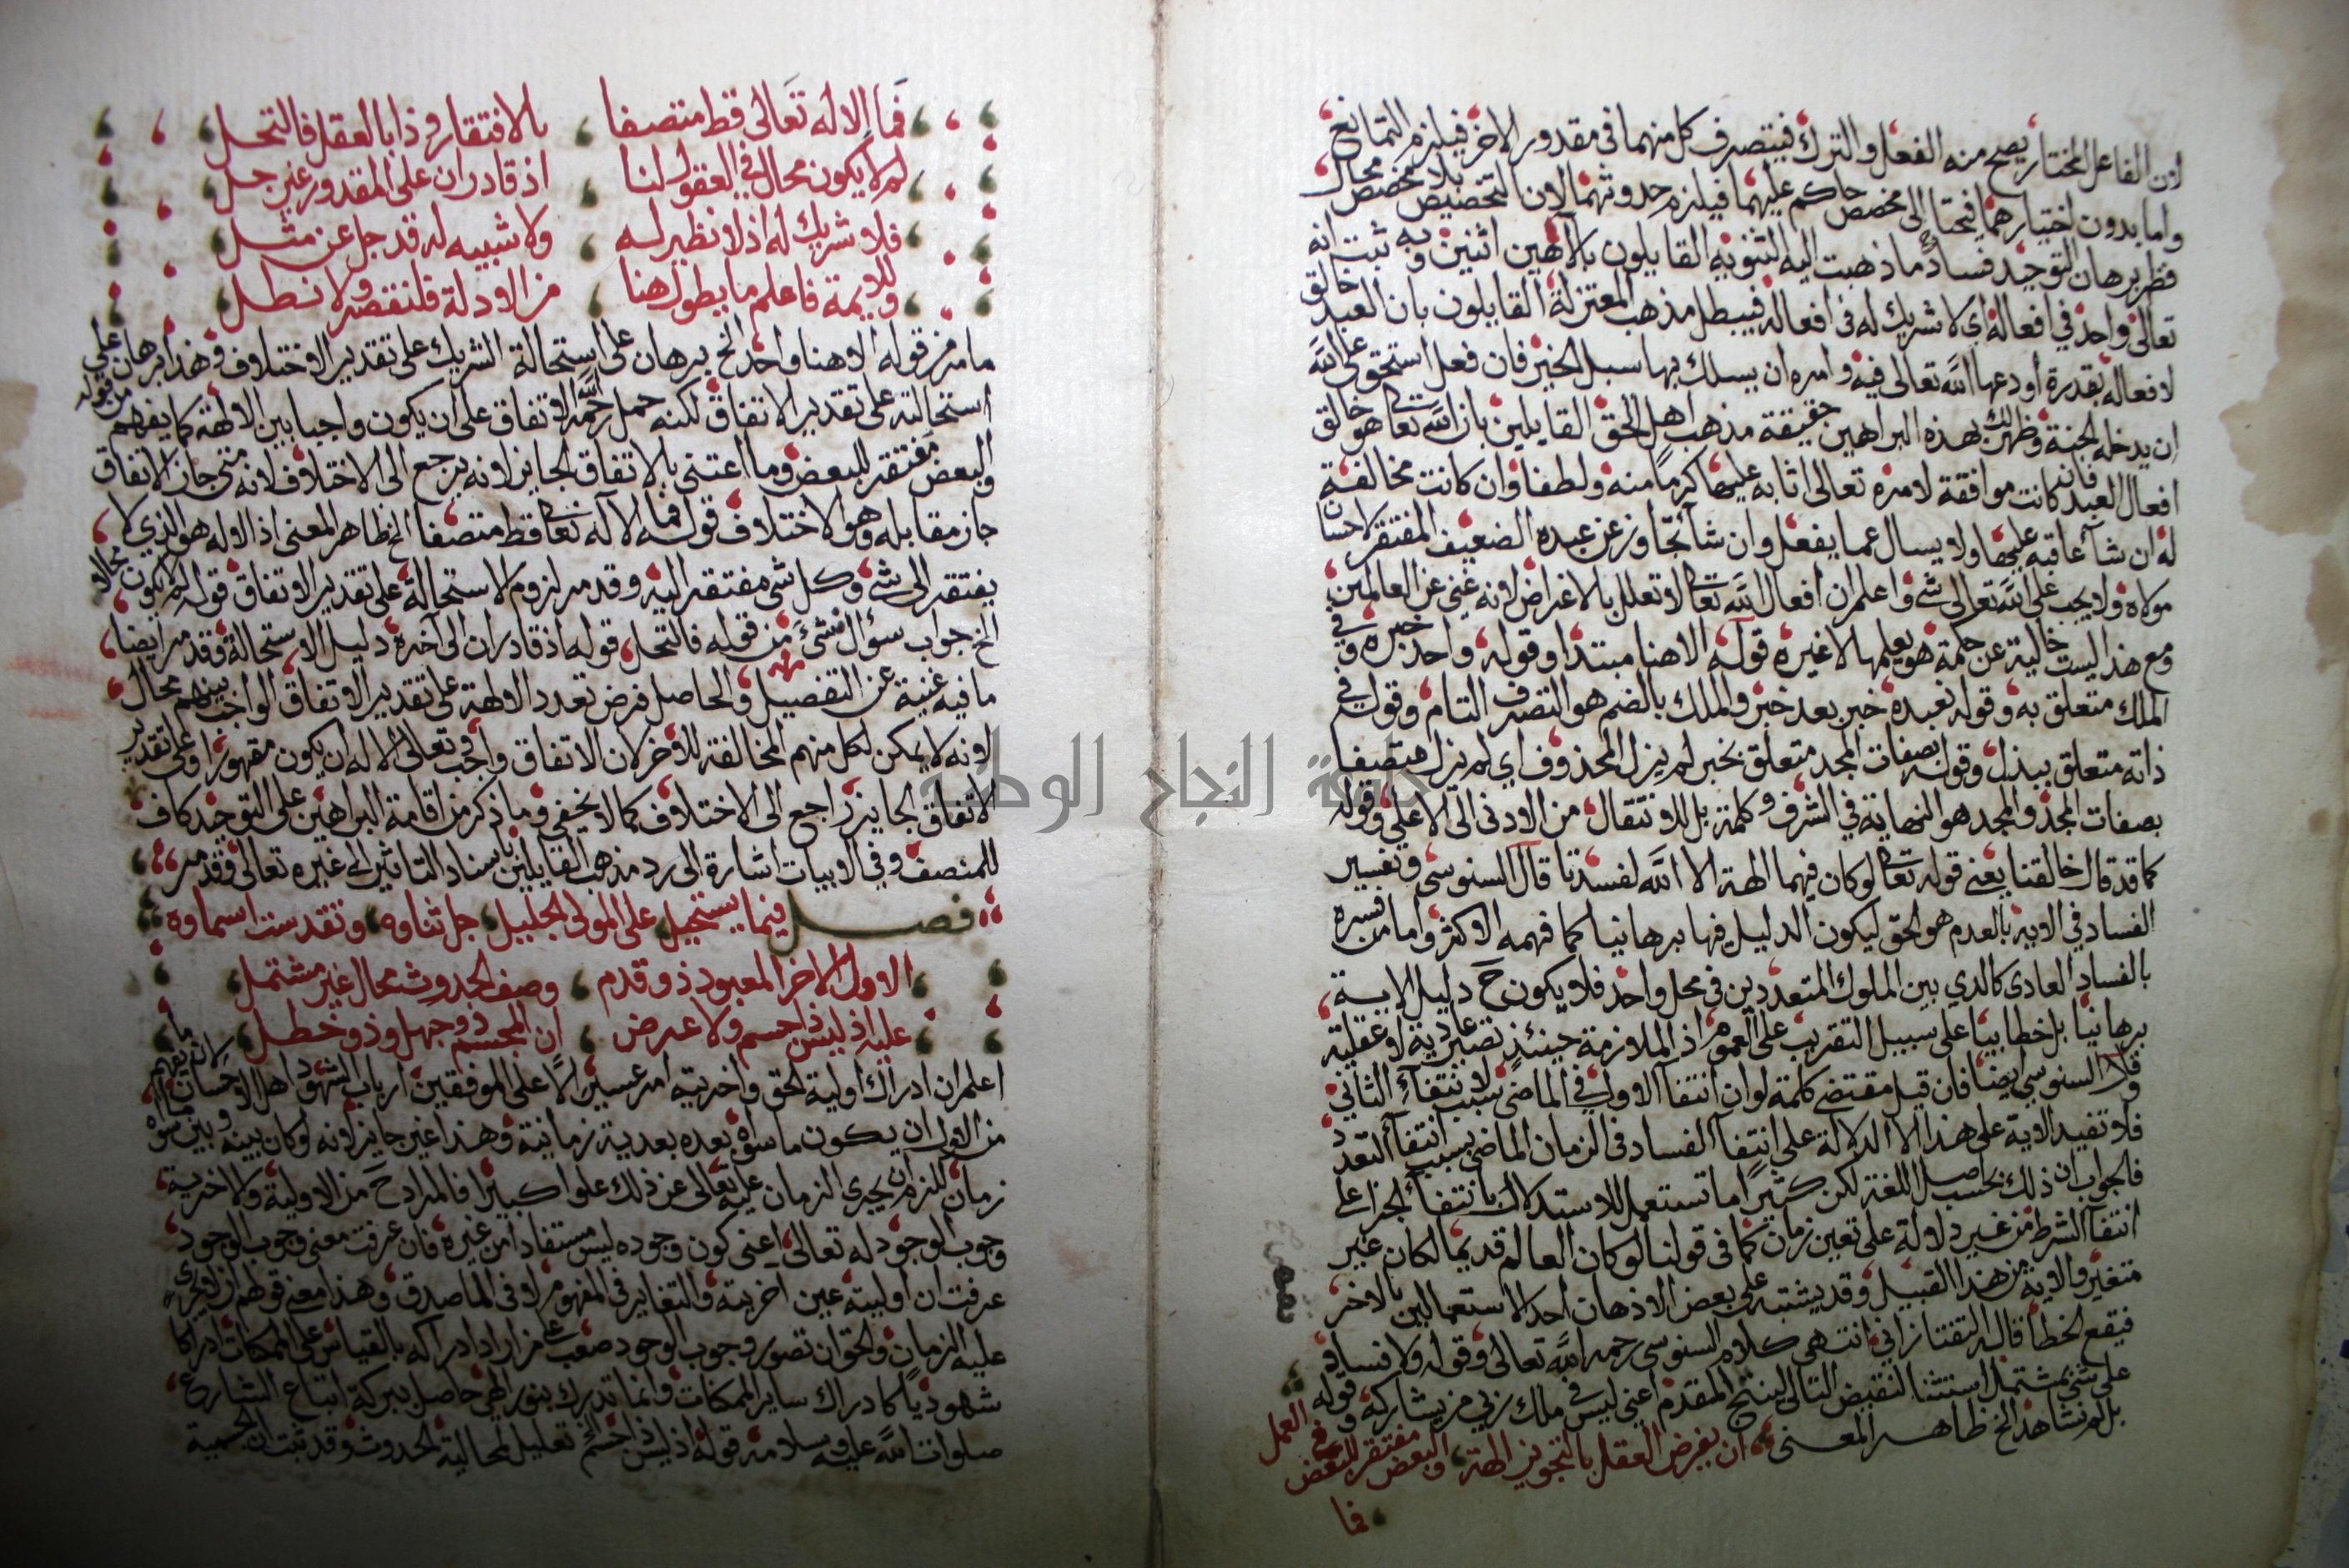 لان الفاعل المختار يصح منه الفعل والترك فيتصرف كل منهما في مقدور الاخر فيلزم التمانع
واما بدون اختيارهما فيحتاج الى مخصص حاكم عليهما فيلزم حدوثهما لان التخصيص بلا مخصص محال
فظهر ببرهان التوحيد فساد ما ذهبت اليه الثنويه القايلون بالاهين اثنين وبه ثبت انه
تعالى واحد في افعاله اي لا شريك له في افعاله فيبطل مذهب المعتزلة القايلون بان العبد خالق
لافعاله بقدرة اودعها الله تعالى فيه وامره ان يسلك بها سبل الخير فان فعل استحق على الله
ان يدخله الجنة وظهر لك بهذه البراهين حقيقة مذهب اهل الحق القايلين بان الله تعالى هو خالق
افعال العبد فانه كانت موافقة لامره تعالى اثابه عليها كرما منه ولطفا وان كانت مخالفة
له ان شآ عاقبه عليها ولا يسال عما يفعل وان شآ تجاوز عن عبده الضعيف المفتقر لاحسان
مولاه ولا يجب على الله تعالى شئ واعلم ان افعال الله تعالى لا تعلل بالاغراض لانه غني عن العالمين
ومع هذا ليست خالية عن حكمة هو يعلمها لا غيره قوله الاهنا مبتدا وقوله واحد خبره وفي
الملك متعلق به وقوله نعبده خبر بعد خبر والملك بالضم هو التصرف التام وقوله في
ذاته متعلق ببذل وقوله بصفات المجد متعلق بخبر لم يزل المحذوف اي لم يزل متصفا
بصفات المجد والمجد هو النهاية في الشرف وكلمة بل للانتقال من الادنى الى الاعلى وقوله
كما قد قال خالقنا يعني قوله تعالى لو كان فيهما الهة الا الله لفسدتا قال السنوسي وتفسير
الفساد في الاية بالعدم هو الحق ليكون الدليل فيها برهانيا كما فهمه الاكثر واما من فسره
بالفساد العادي كالذي بين الملوك المتعددين في محل واحد فلا يكون ح دليل الاية
برهانيا بل خطابيا على سبيل التقريب على العموم اذ الملازمة حينئذ تصير عادية لا عقلية
وقال السنوسي ايضا فان قيل مقتضى كلمة لو ان انتفآ الاول في الماضي بسبب انتفآء الثاني
فلا تفيد الاية على هذا الا الدلالة على انتفآ الفساد في الزمان الماضي بسبب انتفآ التعدد
فالجواب ان ذلك بحسب اصل اللغة لكن كثيرا ما تستعمل للاستدلال بانتفآء الجزا على
انتفآ الشرط من غير دلالة على تعين زمان كما في قولنا لو كان العالم قديما لكان غير
متغير والاية من هذا القبيل وقد يشتبه على بعض الاذهان احد الاستعمالين بالاخر
فيقع الخطا قاله التفتازاني انتهى كلام السنوسي رحمه الله تعالى وقوله ولا فساد
على شئ بمشتمل استثنا لنقيض التالي لينتج المقدم اعني ليس في ملك ربي من يشاركه وقوله
بل لم نشاهد الخ ظاهر المعنى ان يفرض العقل بالتجويز الهة والبعض مفتقر للبعض في العمل
فما
فما الاله تعالى قط متصفا بالافتقار وذا بالعقل فالتحل
لم لا يكون محال في العقول لنا اذ قادران على المقدور غير جل
فلا شريك له اذ لا نظير له ولا شبيه له قد جل عن مثل
وللايمة فاعلم ما يطول هنا من الادلة فلنقصر ولا نطل
ما مر من قوله الاهنا واحد الخ برهان على استحالة الشريك على تقدير الاختلاف وهذا برهان على
استحالته على تقدير الاتفاق لكنه حمل رحمه الله الاتفاق على ان يكون واجبا بين الالهة كما يفهم من قوله
والبعض مفتقر للبعض وما اعتنى بالاتفاق الجايز لانه يرجع الى الاختلاف لانه متى جاز الاتفاق
جاز مقابله وهو الاختلاف قوله فما الاله تعالى قط متصفا الخ ظاهر المعنى اذ الاله هو الذي لا
يفتقر الى شئ وكل شئ مفتقر اليه وقد مر لزوم الاستحالة على تقدير الاتفاق قوله لم لا يكون محالا
الخ جواب سؤال منشئ من قوله فالتحل قوله اذ قادران الى آخره دليل الاستحالة وقد مر ايضا
ما فيه غنية عن التفصيل والحاصل فرض تعدد الالهة على تقدير الاتفاق الواجب بينهم محال
لانه لا يمكن لكل منهم المخالفة للاخر لان الاتفاق واجب تعالى الاله ان يكون مقهورا وعلى تقدير
الاتفاق الجايز راجع الى الاختلاف كما لا يخفى وما ذكر من اقامة البراهين على التوحيد كاف
للمنصف وفي الابيات اشارة الى رد مذهب القايلين باسناد التاثير الى غيره تعالى وقد مر
فصل فيما يستحيل على المولى الجليل جل ثناوه وتقدست اسماوه
الاول الاخر المعبود ذو قدم وصف الحدوث محال غير مشتمل
عليه اذ ليس ذا جسم ولا عرض ان المجسم ذو جهل وذو خطل
اعلم ان ادراك اولية الحق واخريته امر عسير الا على الموفقين ارباب الشهود اهل الاحسان لانه يفهم
من الاول ان يكون ما سواه بعده بعدية زمانية وهذا غير جايز لانه لو كان بينه وبين ما سواه
زمان للزم ان يجري الزمان عليه تعالى عن ذلك علوا كبيرا فالمراد ح من الاولية والاخرية
وجوب الوجود له تعالى اعني كون وجوده ليس مستفادا من غيره فان عرفت معنى وجوب الوجود
عرفت ان اوليته عين اخريته والتغاير في المفهوم لا في الماصدق وهذا معنى قولهم لا يجري
عليه الزمان والحق ان تصور وجوب الوجود صعب على من اراد ادراكه بالقياس على الممكنات ادراكا
شهوديا كادراك ساير الممكنات وانما تدرك بنور الهي حاصل ببركة اتباع الشارع
صلوات الله عليه وسلامه قوله اذ ليس ذا جسم تعليل لمحالية الحدوث وقد ثبت ان الجسمية
جامعة النجاح الوطنية